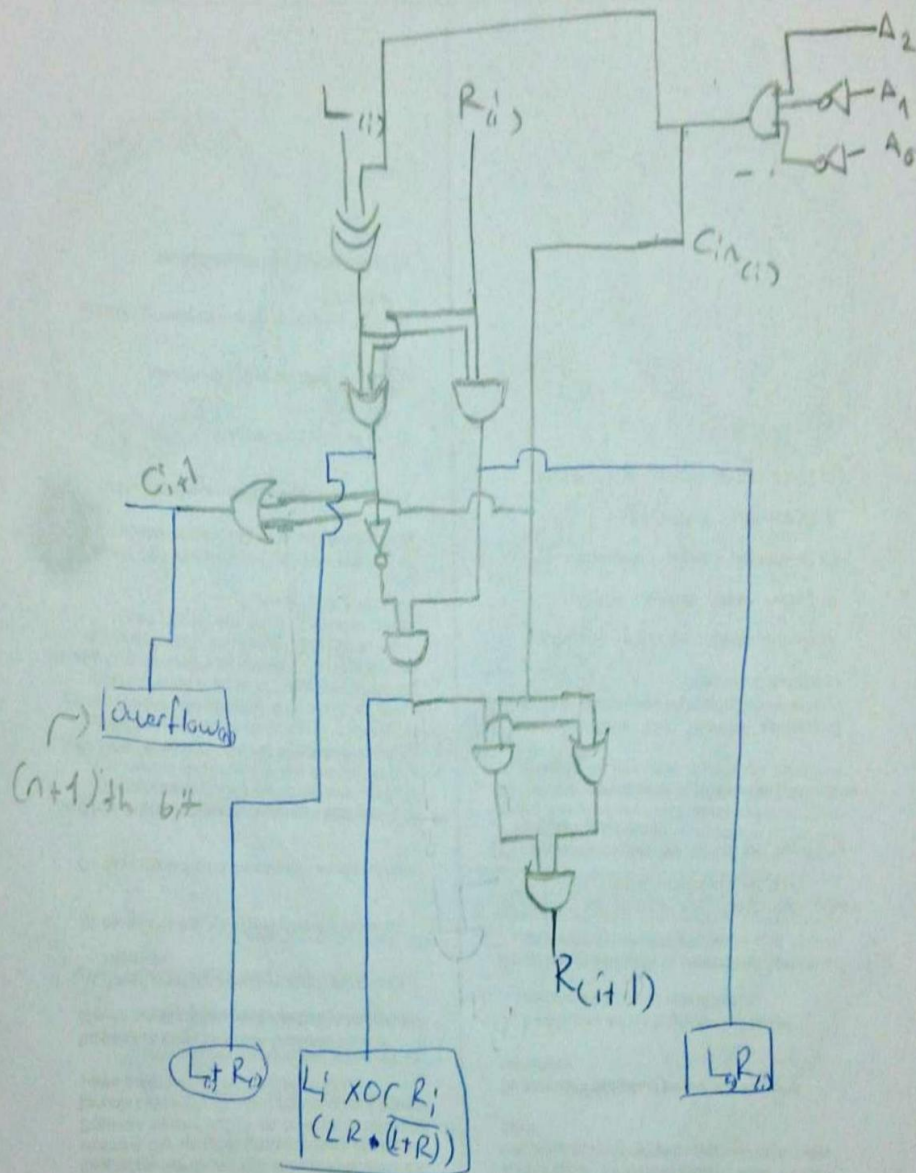 A2
A1
A0
L(i)
R(i)
Cin(i)
Ci+1
overflow
(n+1)'th bit
R(i+1)
L(i)+R(i)
Li XOR Ri
(LR . (L+R))
L(i)R(i)